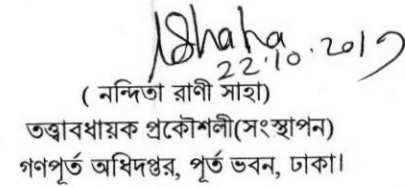 Shaha
22.10.2017
( নন্দিতা রাণী সাহা)
তত্ত্বাবধায়ক প্রকৌশলী(সংস্থাপন)
গণপূর্ত অধিদপ্তর, পূর্ত ভবন, ঢাকা।